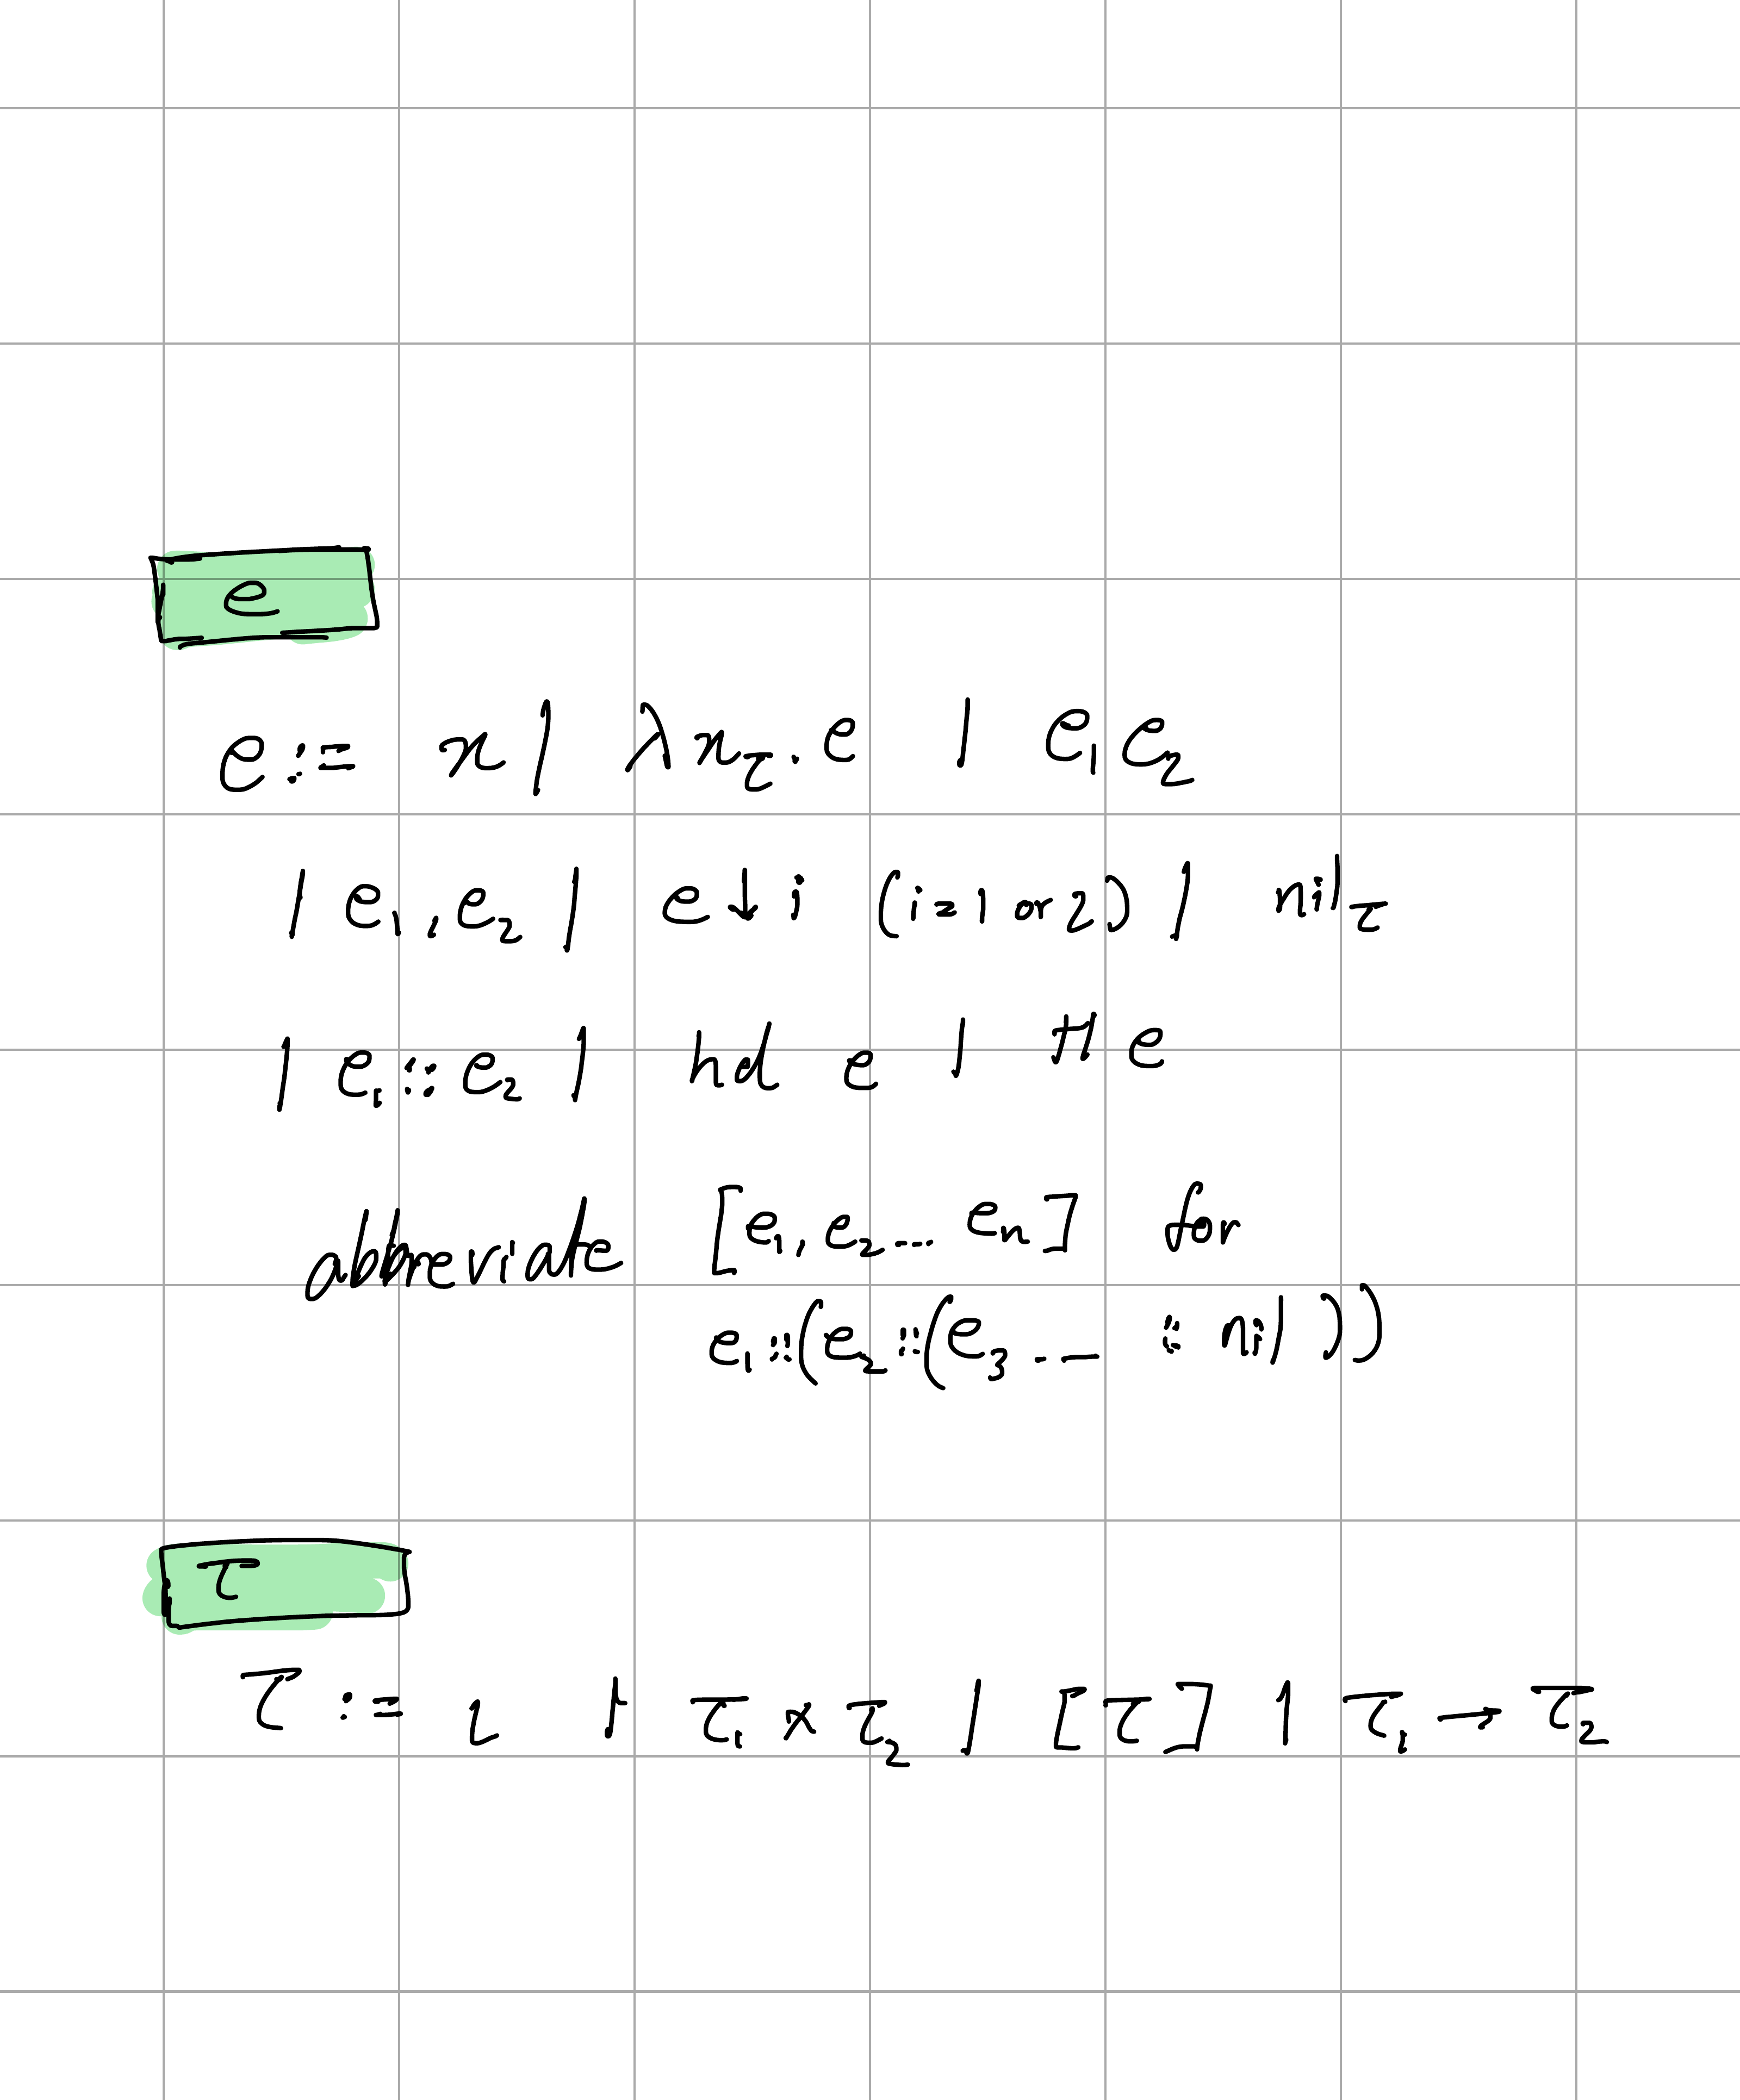 e
e := x | λx_τ. e | e₁ e₂
| e₁, e₂ | e↓i (i=1 or 2) | nil_τ
| e₁::e₂ | hd e | tl e
abbreviate [e₁, e₂... eₙ] for
e₁::(e₂::(e₃... :: nil))
τ
τ := ι | τ₁ × τ₂ | [τ] | τ₁ → τ₂